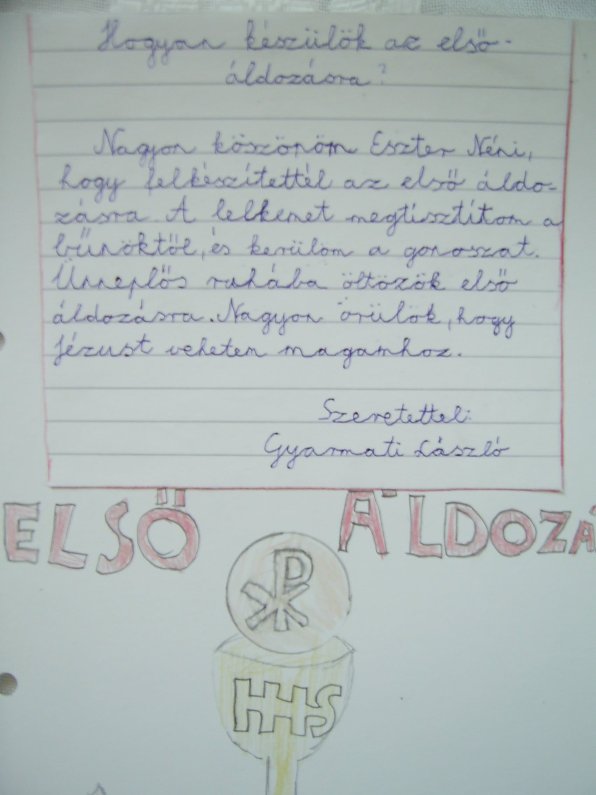 Hogyan készülök az első-
áldozásra?
Nagyon köszönöm Eszter Néni,
hogy felkészítettél az első áldo-
zásra. A lelkemet megtisztítom a
bűnöktől, és kerülöm a gonoszat.
Ünneplős ruhába öltözök első
áldozásra. Nagyon örülök, hogy
Jézust vehetem magamhoz.
Szeretettel:
Gyarmati László
ELSŐ ÁLDOZÁ
HHS